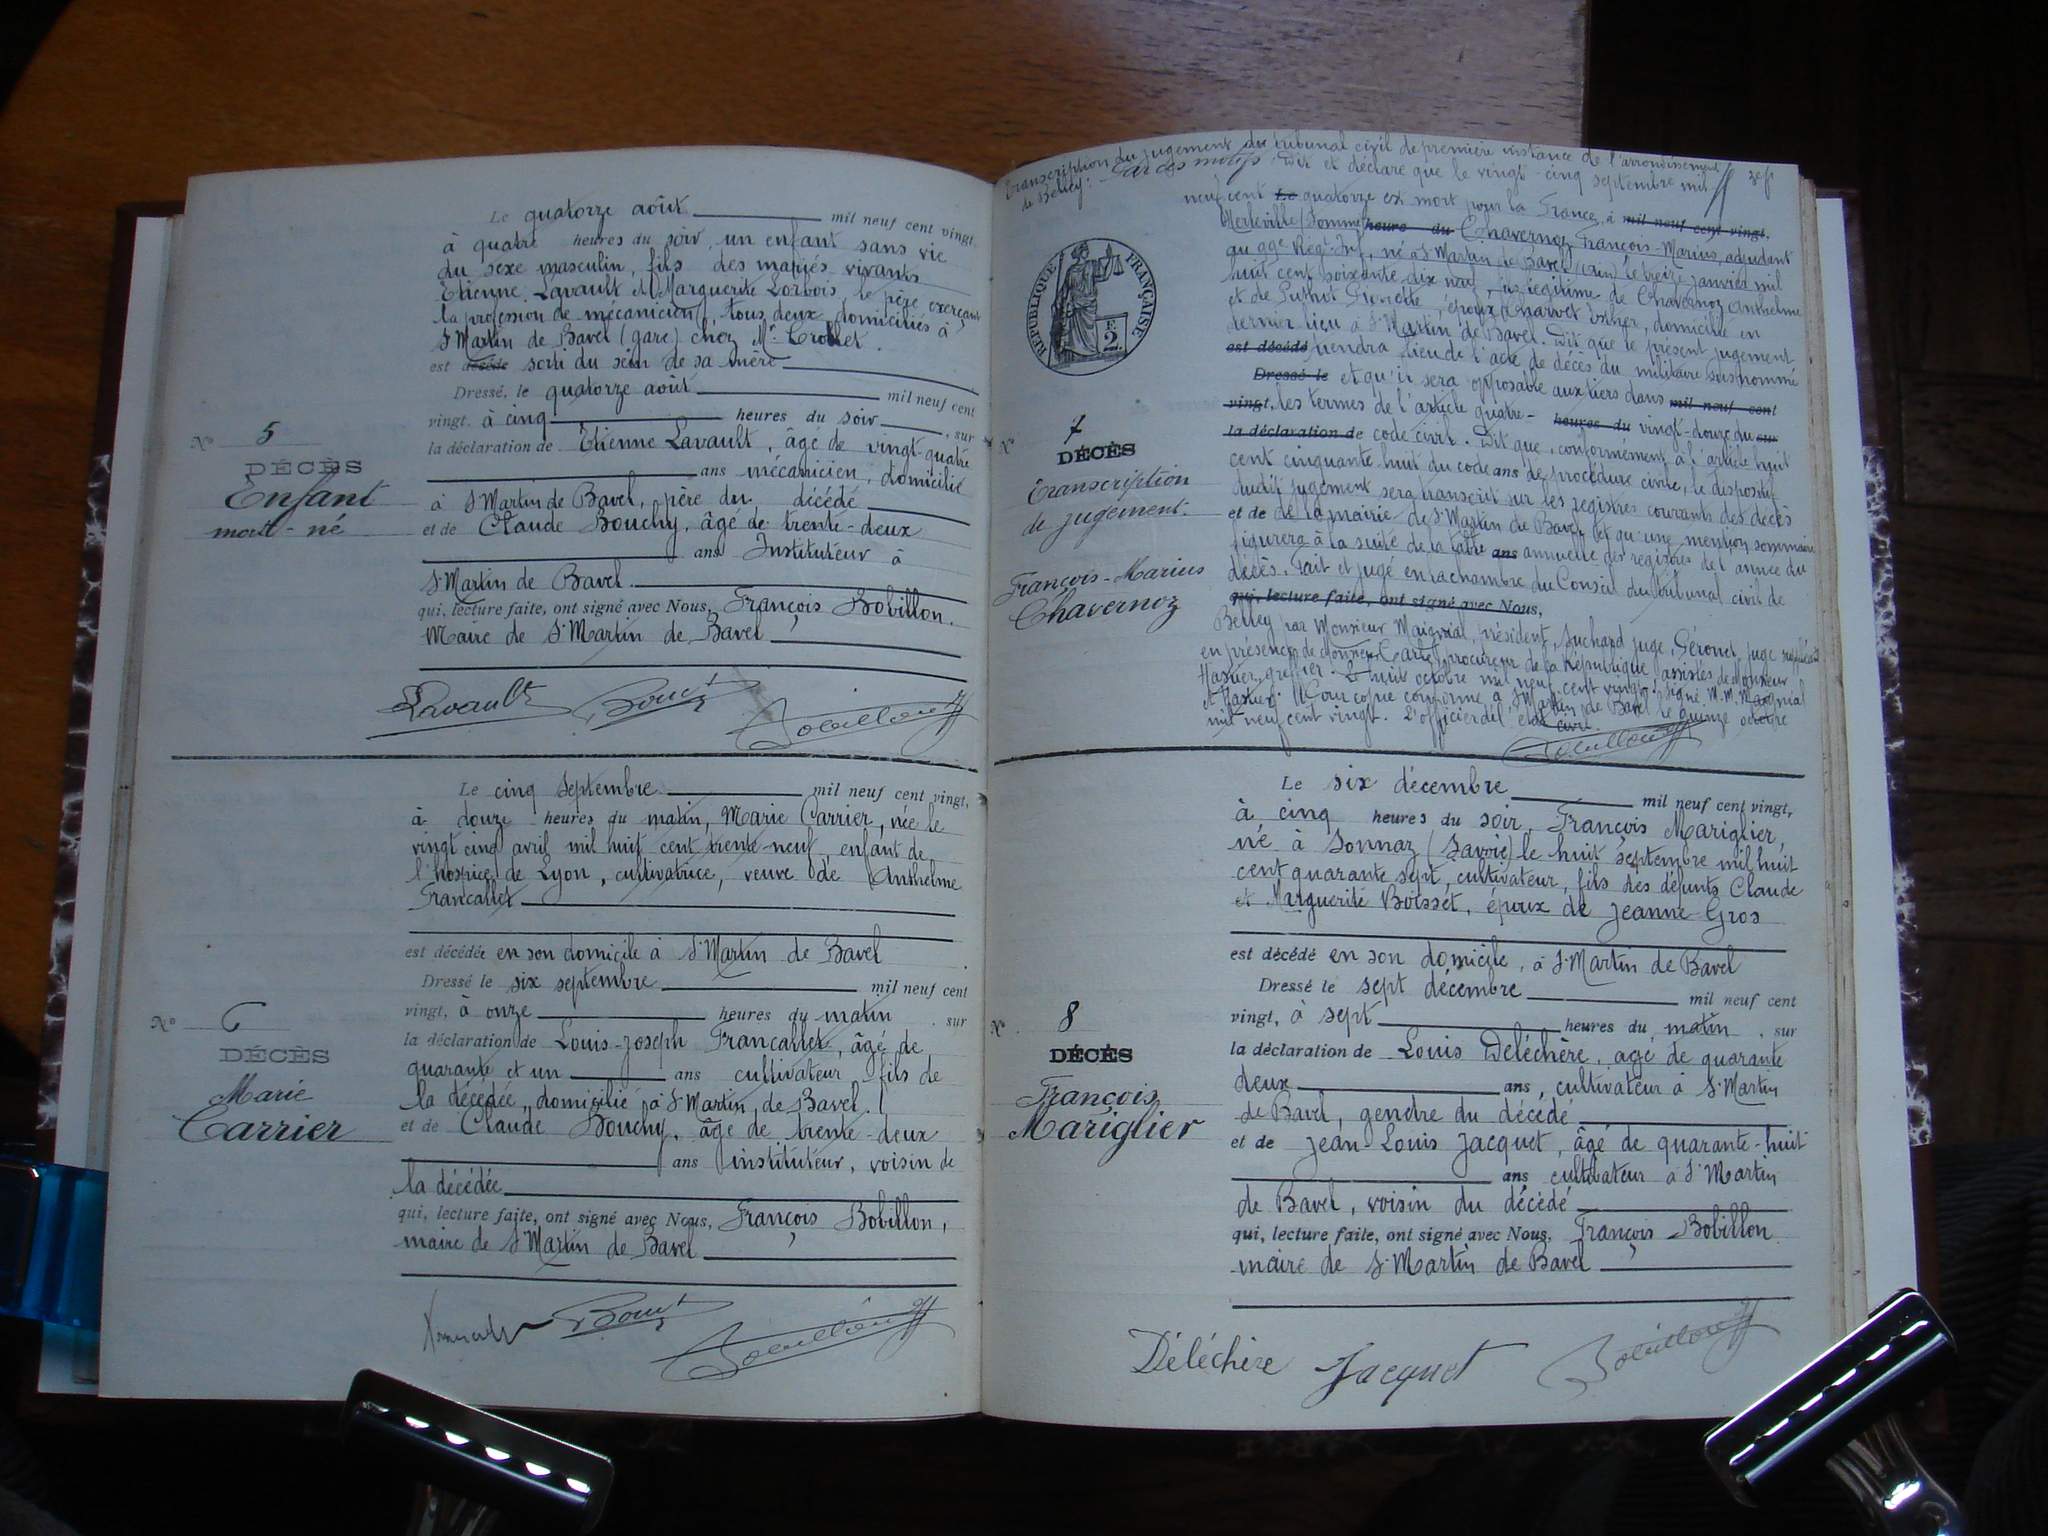 Le quatorze août mil neuf cent vingt,
à quatre heures du soir, un enfant sans vie
du sexe masculin, fils des mariés vivants
Etienne Lavault et Marguerite Lorbois, le père exerçant
la profession de mécanicien, tous deux domiciliés à
St Martin de Bavel (gare) chez Mr Crollet.
est décédé sorti du sein de sa mère
Dressé, le quatorze août mil neuf cent
vingt, à cinq heures du soir, sur
la déclaration de Etienne Lavault, âgé de vingt-quatre
ans mécanicien, domicilié
à St Martin de Bavel, père du décédé
et de Claude Bouchy, âgé de trente-deux
ans Instituteur à
St Martin de Bavel.
qui, lecture faite, ont signé avec Nous, François Bobillon,
Maire de St Martin de Bavel
No 5
DÉCÈS
Enfant
mort-né
Lavault
Bobillon
Le cinq septembre mil neuf cent vingt,
à douze heures du matin, Marie Carrier, née le
vingt cinq avril mil huit cent trente-neuf, enfant de
l'hospice de Lyon, cultivatrice, veuve de Anthelme
Francallet
est décédée en son domicile à St Martin de Bavel
Dressé le six septembre mil neuf cent
vingt, à onze heures du matin, sur
la déclaration de Louis-Joseph Francallet, âgé de
quarante et un ans cultivateur, fils de
la décédée, domicilié à St Martin de Bavel.
et de Claude Bouchy, âgé de trente-deux
ans instituteur, voisin de
la décédée
qui, lecture faite, ont signé avec Nous, François Bobillon,
maire de St Martin de Bavel
No 6
DÉCÈS
Marie
Carrier
Bobillon
Transcription du jugement du tribunal civil de première instance de l'arrondissement
de Belley: - Par ces motifs: Dit et déclare que le vingt-cinq septembre mil
neuf cent Le quatorze est mort pour la France, à mil neuf cent vingt,
Herleville (Somme) heure du Chavernoz François-Marius, adjudant
au 99e Regt Inf, né à St Martin de Bavel (Ain) le treize janvier mil
huit cent soixante dix neuf, fils légitime de Chavernoz Anthelme
et de Pethut Pierrette, époux Charvet Esther, domicilié en
dernier lieu à St Martin de Bavel. Dit que le présent jugement
est décédé tiendra lieu de l'acte de décès du militaire susnommé
Dressé le et qu'il sera opposable aux tiers dans mil neuf cent
vingt, les termes de l'article quatre- heures du vingt-douze du sur
la déclaration de code civil. Dit que, conformément à l'article huit
cent cinquante-huit du code ans de procédure civile, le dispositif
dudit jugement sera transcrit sur les registres courants des décès
et de de la mairie de St Martin de Bavel et qu'une mention sommaire
figurera à la suite de la table ans annuelle des registres de l'année du
décès. Fait et jugé en la chambre du Conseil du tribunal civil de
qui, lecture faite, ont signé avec Nous,
Belley par Monsieur Maignial, président, Suchard juge, Géronet, juge suppléant
en présence de Monsieur Carle, procureur de la République, assistés de Monsieur
Hastier, greffier. Le huit octobre mil neuf cent vingt. Signé M.M. Maignial
et Hastier. Pour copie conforme à St Martin de Bavel le quinze octobre
mil neuf cent vingt. L'officier de l'état civil
Bobillon
RÉPUBLIQUE FRANÇAISE
2F.
No 7
DÉCÈS
Transcription
de jugement.
François-Marius
Chavernoz
Le six décembre mil neuf cent vingt,
à cinq heures du soir, François Mariglier,
né à Sonnaz (Savoie) le huit septembre mil huit
cent quarante sept, cultivateur, fils des défunts Claude
et Marguerite Boisset, époux de Jeanne Gros
est décédé en son domicile, à St Martin de Bavel
Dressé le sept décembre mil neuf cent
vingt, à sept heures du matin, sur
la déclaration de Louis Deléchère, agé de quarante
deux ans, cultivateur à St Martin
de Bavel, gendre du décédé
et de Jean-Louis Jacquet, âgé de quarante-huit
ans cultivateur à St Martin
de Bavel, voisin du décédé
qui, lecture faite, ont signé avec Nous, François Bobillon
maire de St Martin de Bavel
No 8
DÉCÈS
François
Mariglier
Déléchère Jacquet Bobillon